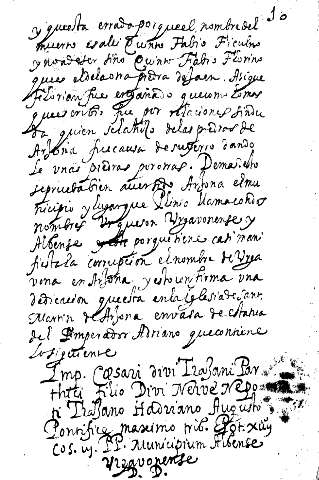 10
y questa errado porque el nombre del
muerto es alli Quinto Fabio Ficulno
y no a de ser sino Quinto Fabio Florino
ques el dela otra piedra de Jaen. Asi que
Florian fue engañado que como lo mas
que escribio fue por relaciones sin du
da quien se las hizo delas piedras de
Arjona fue causa de su yerro dando
le unas piedras por otras. Demas desto
se prueba bien aver sido Arjona el mu
nicipio y lugar que Plinio llama con dos
nombres que son Vrgavonense y
Albense porque tiene casi mani
fiesta la corrupcion el nombre de Vrga
vona en Arjona y esto confirma una
dedicacion questa en la Iglesia de Sant
Martin de Arjona en vasa de estatua
del Emperador Adriano que contiene
lo siguiente
Imp. Cæsari divi Trajani Par
thici Filio Divi Nerve Nepo
ti Trajano Hadriano Augusto
Pontifici maximo trib. Pot. xiiij
cos. iij. PP. Municipium Albense
Vrgavonense
D. D.